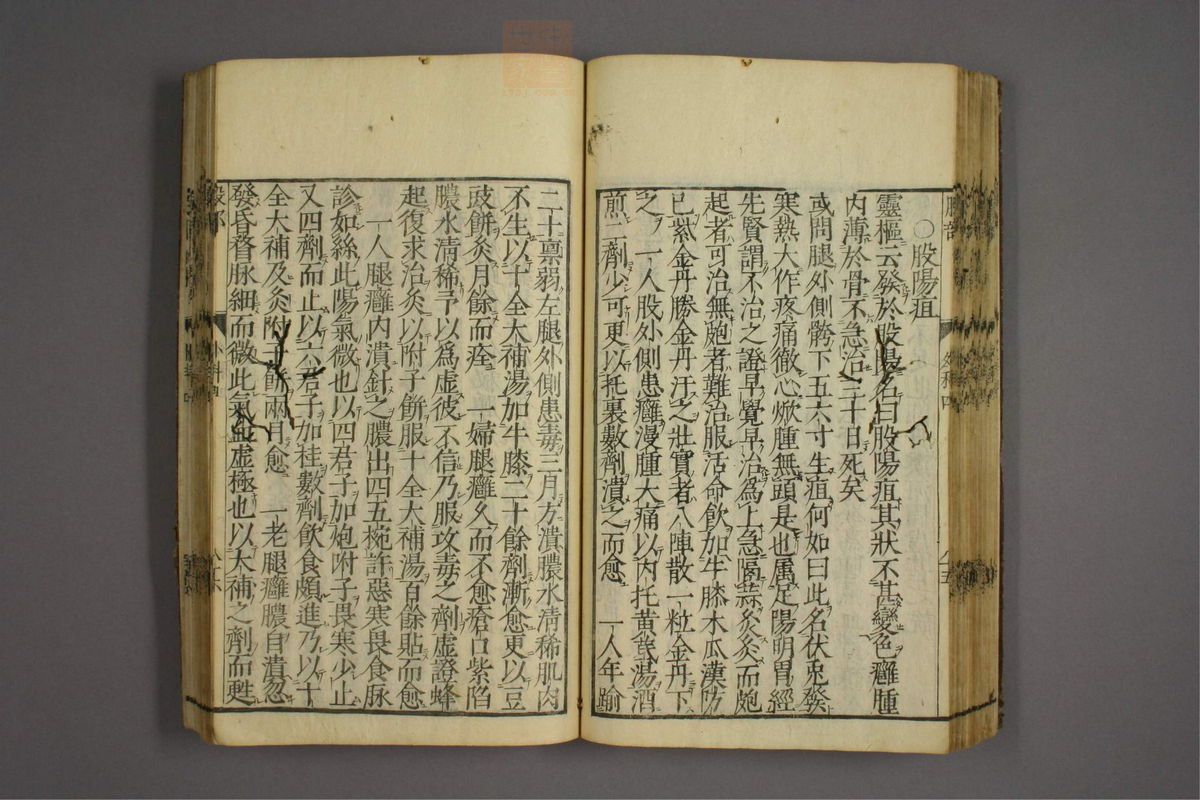 ○股陽疽
靈樞云發於股陽名曰股陽疽其狀不甚變色癰腫
内薄於骨不急治三十日死矣
或問腿外側胯下五六寸生疽何如曰此名伏兎發
寒熱大作疼痛徹心焮腫無頭是也属足陽明胃經
先賢謂不治之證早覺早治爲上急隔蒜灸灸而皰
起者可治無皰者難治服活命飲加牛膝木瓜漢防
已紫金丹勝金丹汗之壯實者八陣散一粒金丹下
之 一人股外側患癰漫腫大痛以内托黄芪湯酒
煎二劑少可更以托裏數劑潰之而愈 一人年踰
二十禀弱左腿外側患毒三月方潰膿水清稀肌肉
不生以十全大補湯加牛膝二十餘劑漸愈更以豆
豉餅灸月餘而痊 一婦腿癰久而不愈瘡口紫陷
膿水清稀予以爲虚彼不信乃服攻毒之劑虚證蜂
起復求治灸以附子餅服十全大補湯百餘貼而愈
一人腿癰内潰針之膿出四五椀許惡寒畏食脉
診如絲此陽氣微也以四君子加炮附子畏寒少止
又四劑而止以六君子加桂數劑飲食頗進乃以十
全大補及灸附子餅兩月愈 一老腿癰膿自潰忽
發昏瞀脉細而微此氣血虚極也以大補之劑而甦